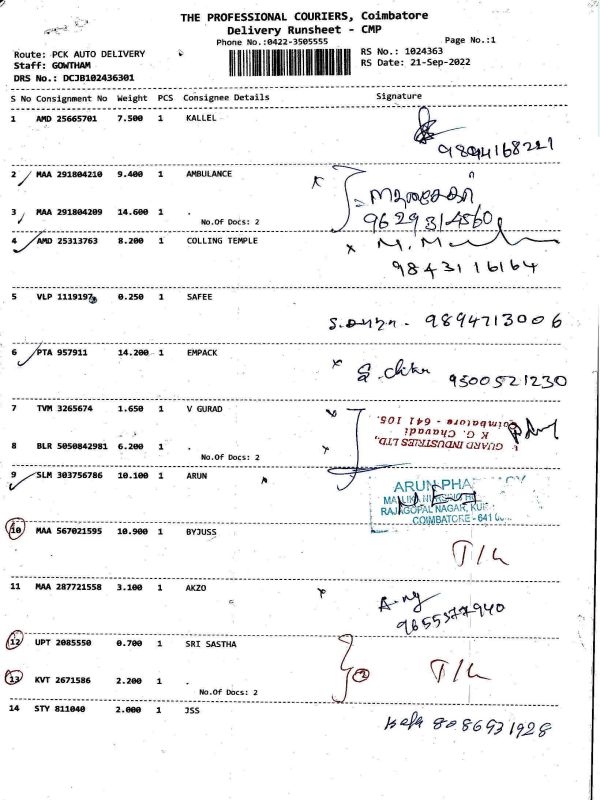 THE PROFESSIONAL COURIERS, Coimbatore
Delivery Runsheet - CMP
Phone No.:0422-3505555 Page No.:1
Route: PCK AUTO DELIVERY RS No.: 1024363
Staff: GOWTHAM RS Date: 21-Sep-2022
DRS No.: DCJB102436301
S No Consignment No Weight PCS Consignee Details Signature
1 AMD 25665701 7.500 1 KALLEL
2 MAA 291804210 9.400 1 AMBULANCE
3 MAA 291804209 14.600 1 .
No.Of Docs: 2
9629314560
4 AMD 25313763 8.200 1 COLLING TEMPLE
9843116164
5 VLP 1119197 0.250 1 SAFEE
9894713006
6 PTA 957911 14.200 1 EMPACK
9500521230
7 TVM 3265674 1.650 1 V GURAD
8 BLR 5050842981 6.200 1 .
No.Of Docs: 2
V GUARD INDUSTRIES LTD,
K G. Chavadi
Coimbatore - 641 105.
9 SLM 303756786 10.100 1 ARUN
ARUN PHA
RAJAGOPAL NAGAR,
COIMBATORE - 641
10 MAA 567021595 10.900 1 BYJUSS
11 MAA 287721558 3.100 1 AKZO
9655377940
12 UPT 2085550 0.700 1 SRI SASTHA
13 KVT 2671586 2.200 1 .
No.Of Docs: 2
2
14 STY 811040 2.000 1 JSS
8086931928